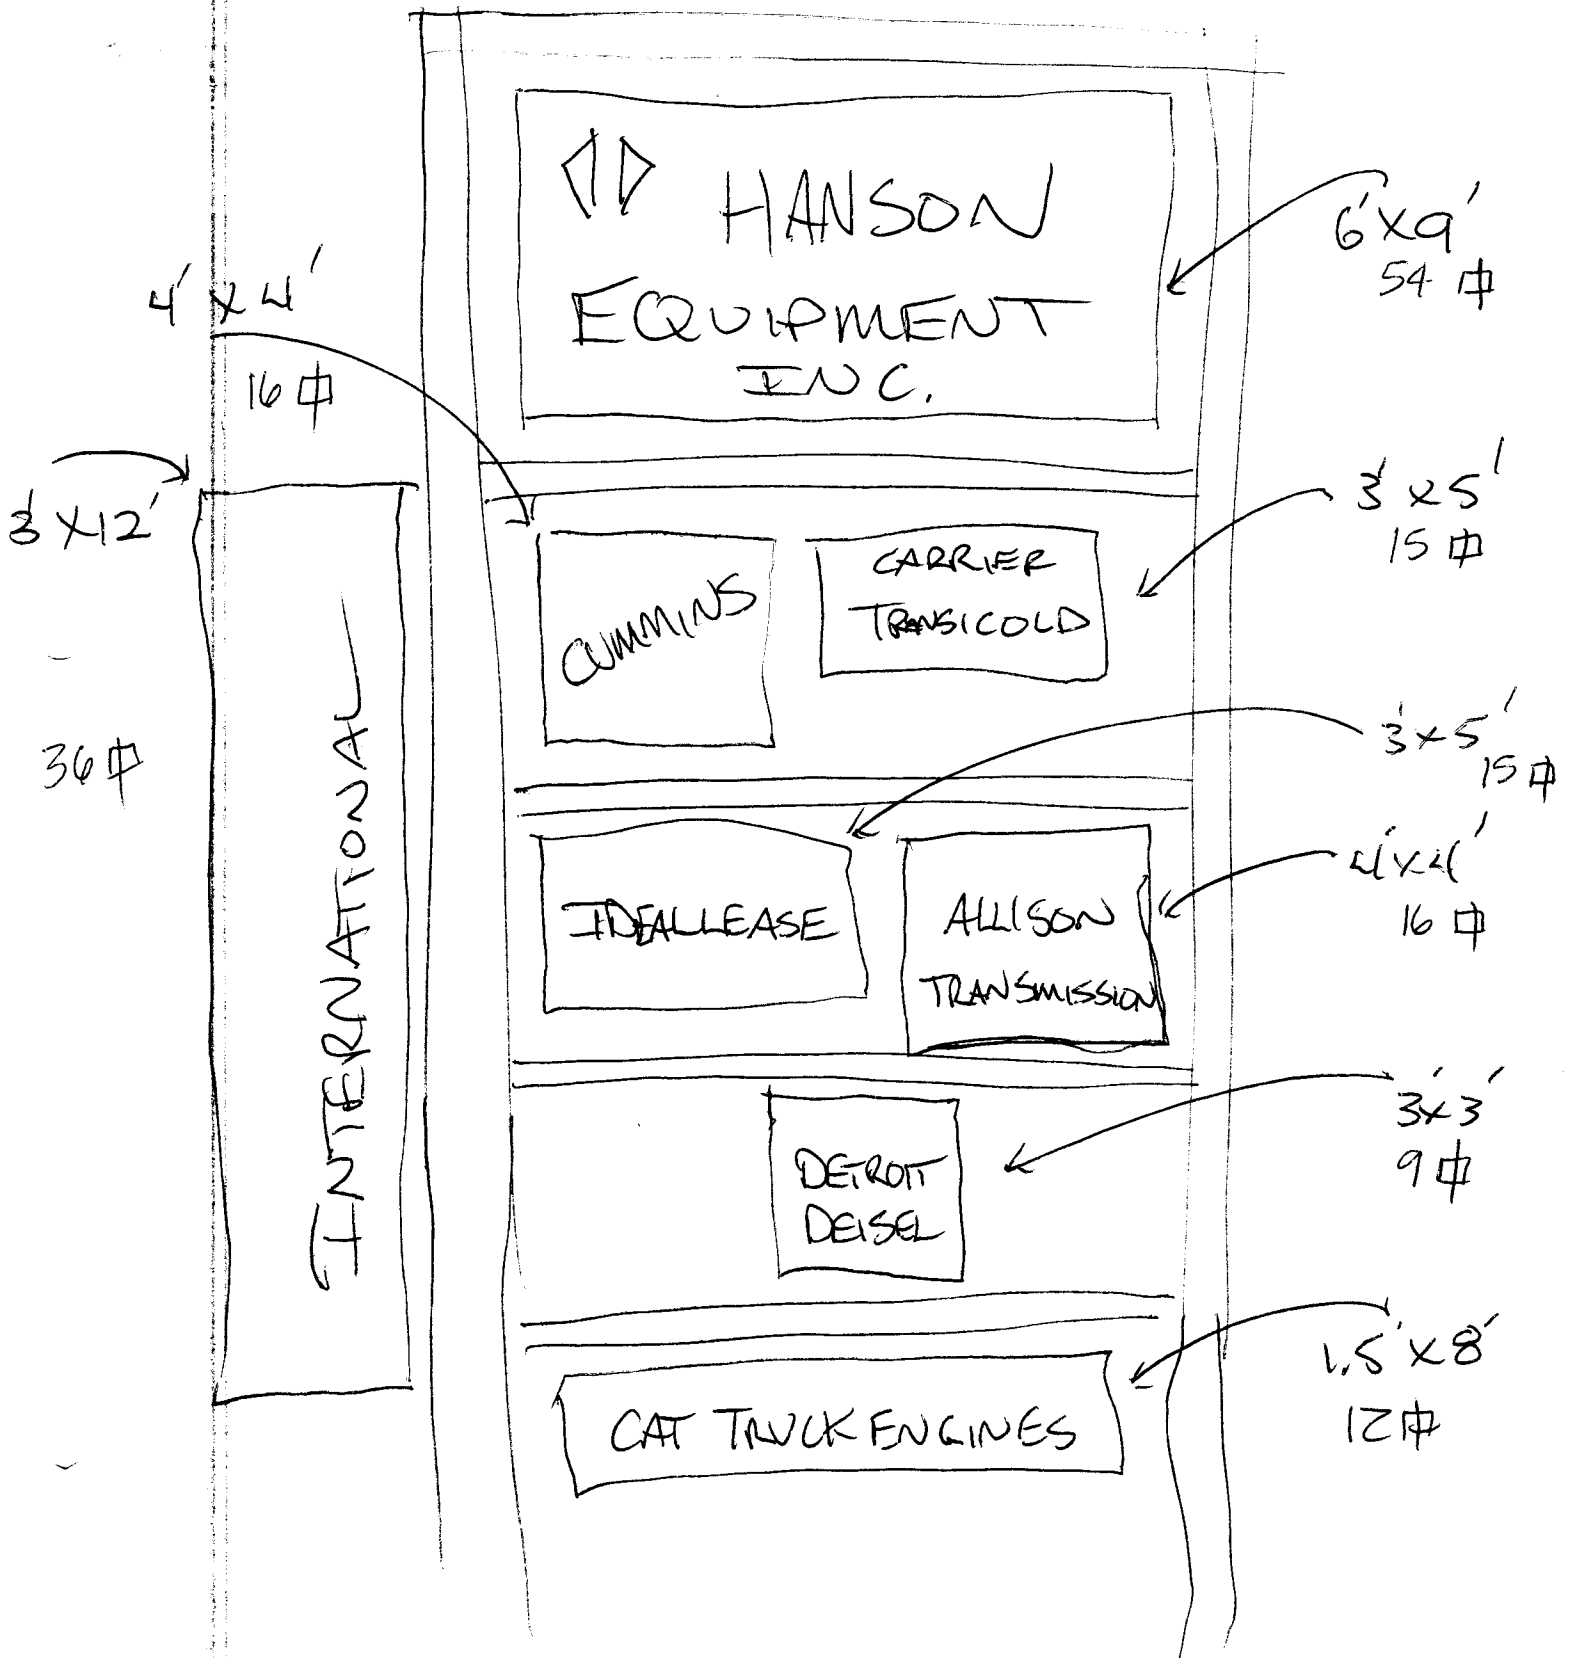 HANSON
EQUIPMENT
INC.
6' x 9'
54 ⏍
4' x 4'
16 ⏍
3' x 12'
36 ⏍
INTERNATIONAL
CUMMINS
CARRIER
TRANSICOLD
3' x 5'
15 ⏍
IDEALLEASE
3' x 5'
15 ⏍
ALLISON
TRANSMISSION
4' x 4'
16 ⏍
DETROIT
DEISEL
3' x 3'
9 ⏍
CAT TRUCK ENGINES
1.5' x 8'
12 ⏍